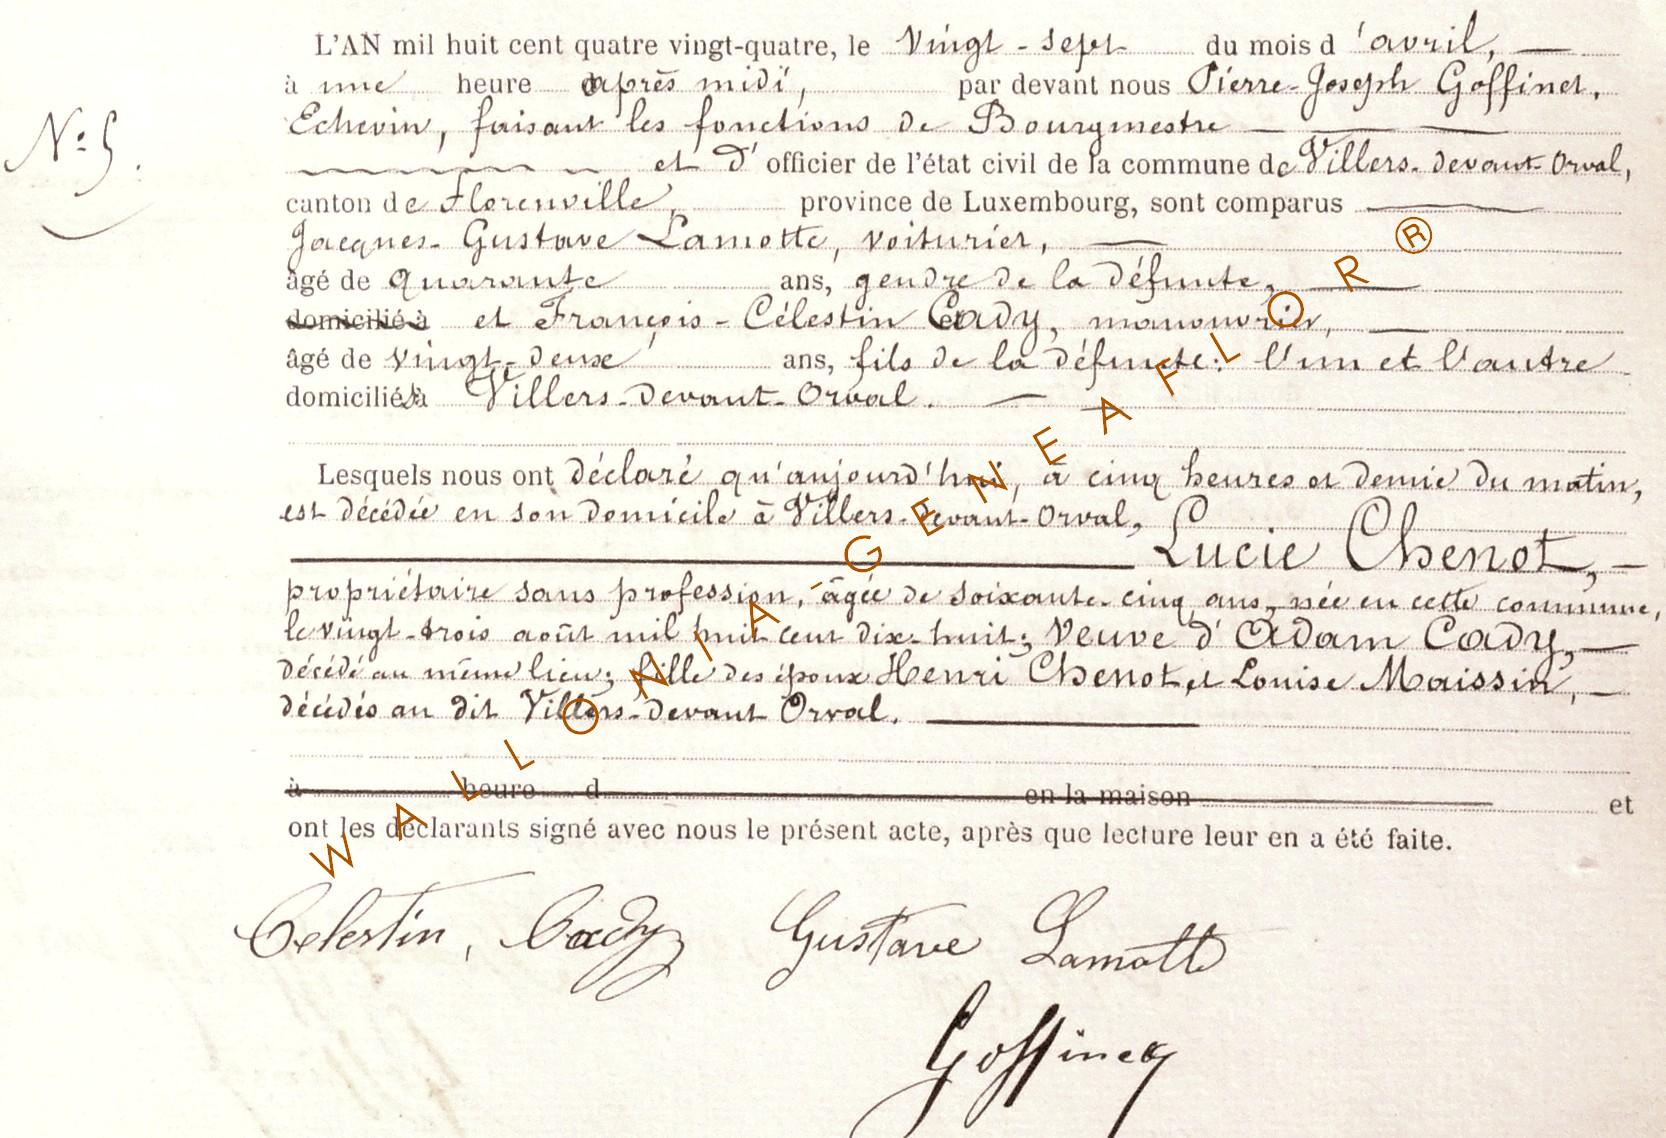 L'AN mil huit cent quatre vingt-quatre, le Vingt-sept du mois d'avril,
à une heure après midi, par devant nous Pierre-Joseph Goffinet,
Echevin, faisant les fonctions de Bourgmestre
N° 5.
et d'officier de l'état civil de la commune de Villers-devant-Orval,
canton de Florenville, province de Luxembourg, sont comparus
Jacques-Gustave Lamotte, voiturier,
âgé de quarante ans, gendre de la défunte,
domicilié à et François-Célestin Cady, manouvrier,
âgé de vingt-deux ans, fils de la défunte: l'un et l'autre
domiciliés à Villers-devant-Orval.
Lesquels nous ont déclaré qu'aujourd'hui, à cinq heures et demie du matin,
est décédée en son domicile à Villers-devant-Orval,
Lucie Chenot,
propriétaire sans profession, âgée de soixante-cinq ans, née en cette commune,
le vingt-trois août mil huit cent dix-huit; Veuve d'Adam Cady,
décédé au même lieu; fille des époux Henri Chenot et Louise Maissin,
décédés au dit Villers-devant Orval.
à heure d en la maison et
ont les déclarants signé avec nous le présent acte, après que lecture leur en a été faite.
Celestin, Cady Gustave Lamotte
Goffinet
WALLONIA-GENEAFLOR®